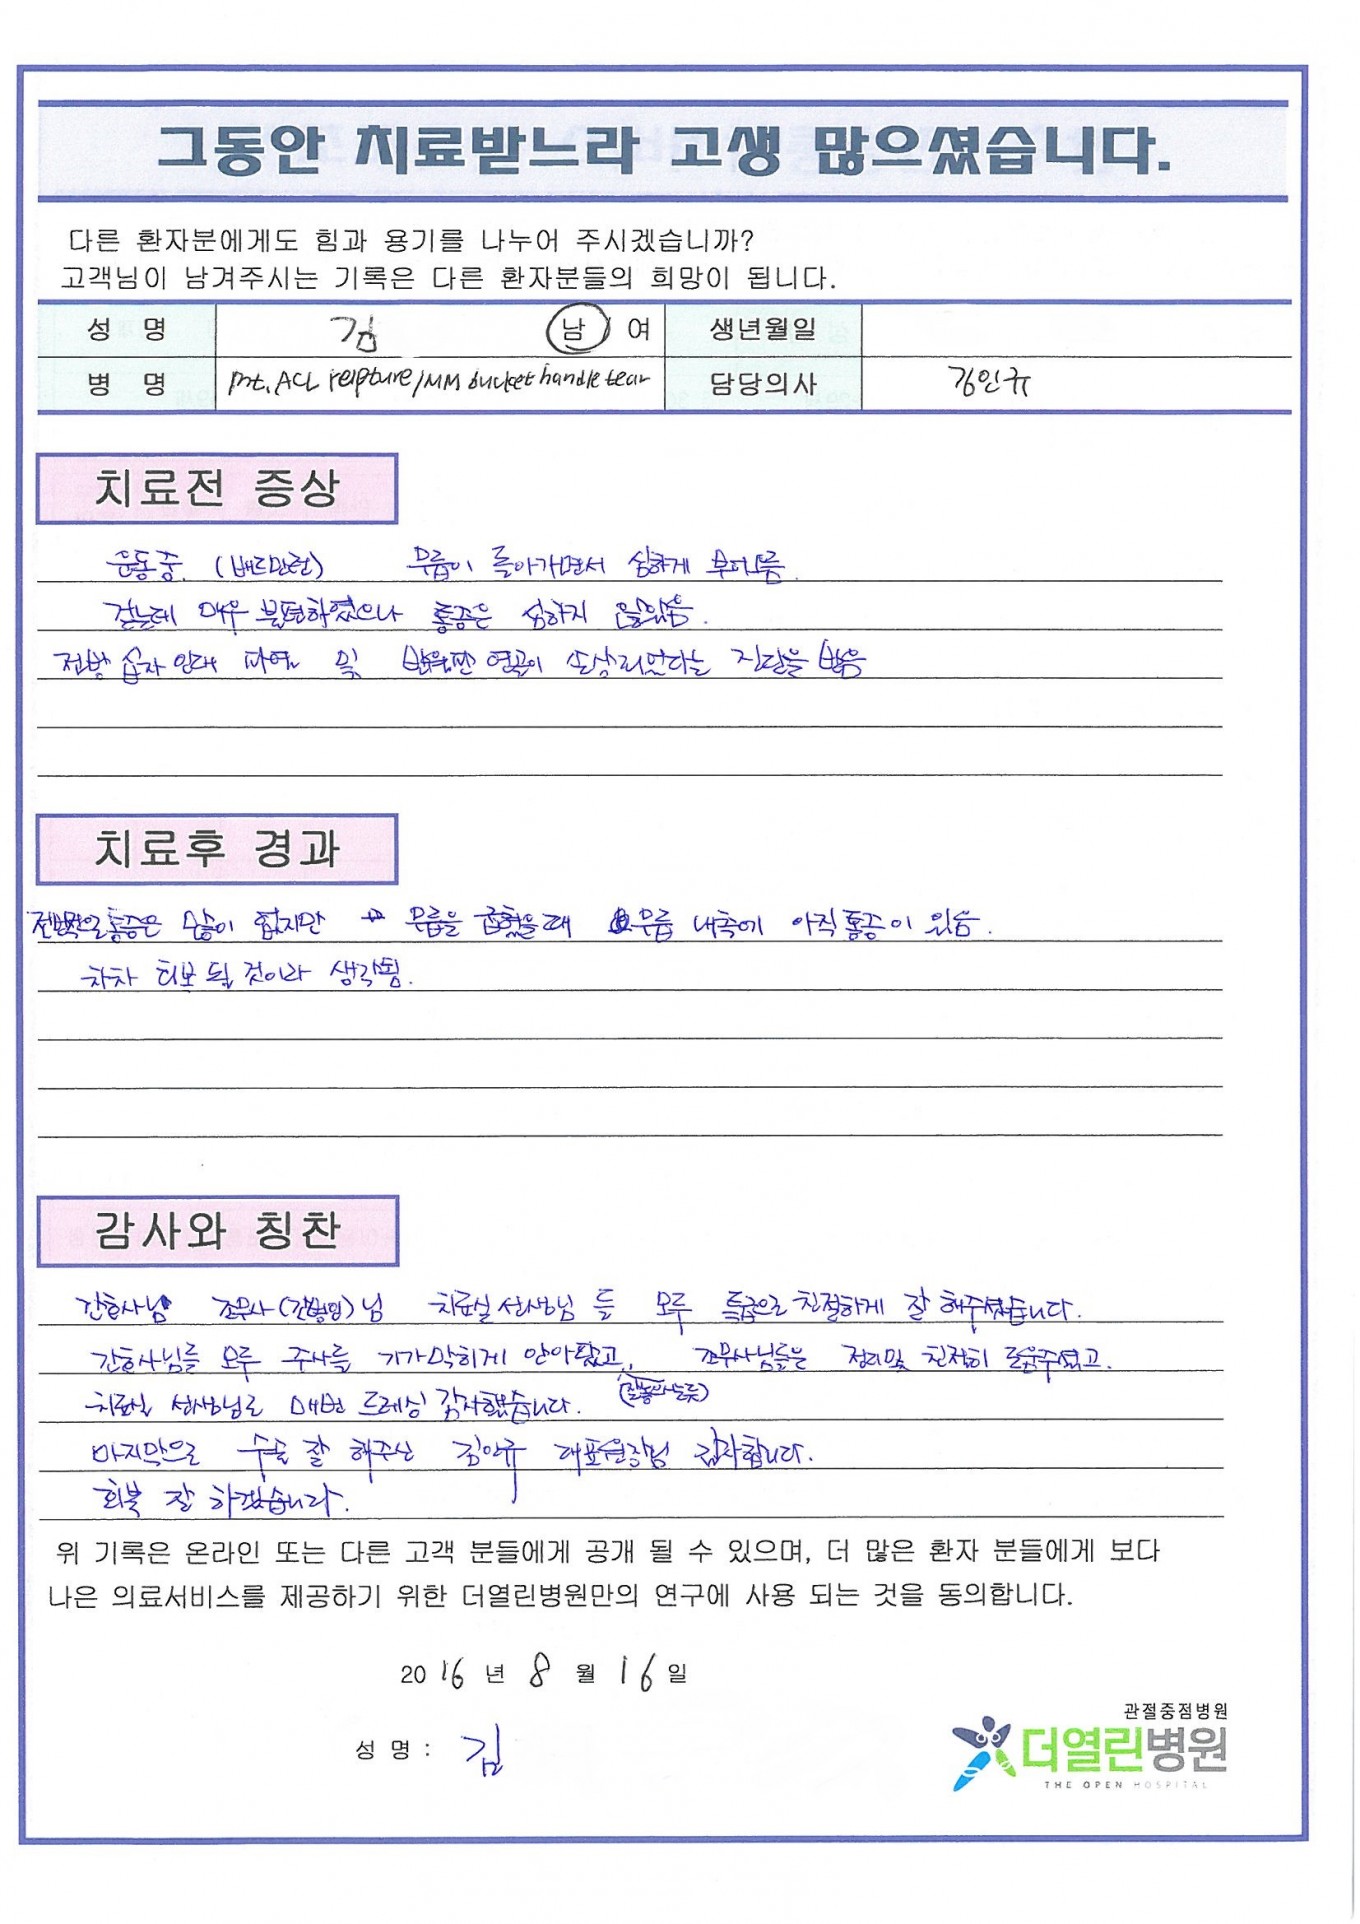 그동안 치료받느라 고생 많으셨습니다.
다른 환자분에게도 힘과 용기를 나누어 주시겠습니까?
고객님이 남겨주시는 기록은 다른 환자분들의 희망이 됩니다.
성 명 김 남 / 여 생년월일
병 명 mt. ACL reupture/MM bucket handle tear 담당의사 김인규
치료전 증상
운동중. (배드민턴) 무릎이 돌아가면서 심하게
걷는데 매우 불편하였으나 통증은 심하지 않았음.
전방 십자 인대 파열 및 반월판 연골이 손상되었다는 진단을 받음
치료후 경과
전반적으로 통증은 많이 없지만 무릎을 굽혔을때 무릎 내측에 아직 통증이 있음.
차차 회복 될 것이라 생각됨.
감사와 칭찬
간호사님 조무사(간병인)님 치료실 선생님 들 모두 특급으로 친절하게 잘 해주셨습니다.
간호사님들 모두 주사를 기가막히게 안아팠고, 조무사님들은 정리및 친절히 도와주셨고.
치료실 선생님도 매번 드레싱 감사했습니다.
마지막으로 수술 잘 해주신 김인규 대표원장님 감사합니다.
회복 잘 하겠습니다.
위 기록은 온라인 또는 다른 고객 분들에게 공개 될 수 있으며, 더 많은 환자 분들에게 보다
나은 의료서비스를 제공하기 위한 더열린병원만의 연구에 사용 되는 것을 동의합니다.
2016 년 8 월 16 일
성 명 : 김
관절중점병원
더열린병원
THE OPEN HOSPITAL